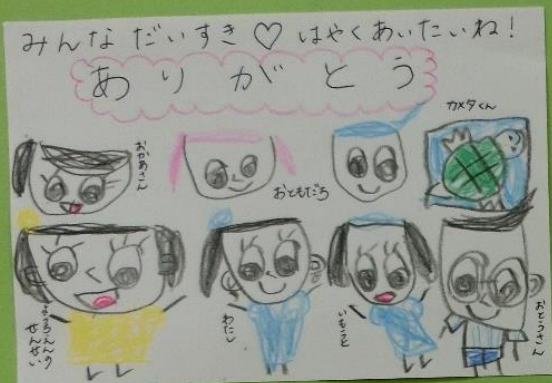 みんなだいすき♡はやくあいたいね！
ありがとう
おかあさん
おともだち
カメタくん
ようちえんのせんせい
わたし
いもうと
おとうさん